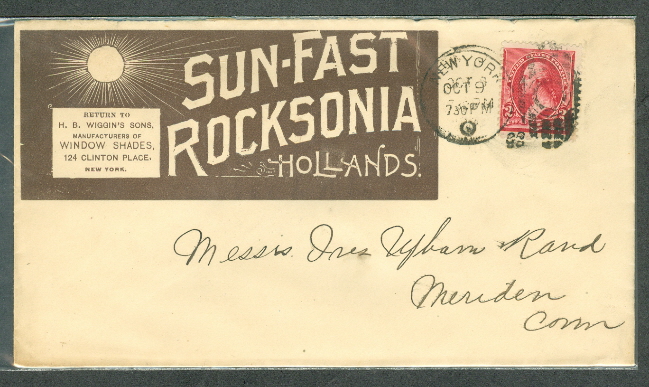 SUN-FAST
ROCKSONIA
HOLLANDS.
RETURN TO
H. B. WIGGIN'S SONS,
MANUFACTURERS OF
WINDOW SHADES,
124 CLINTON PLACE,
NEW YORK.
NEW YORK
OCT 9
730 PM
Messrs. Ives Upham Rand
Meriden
Conn